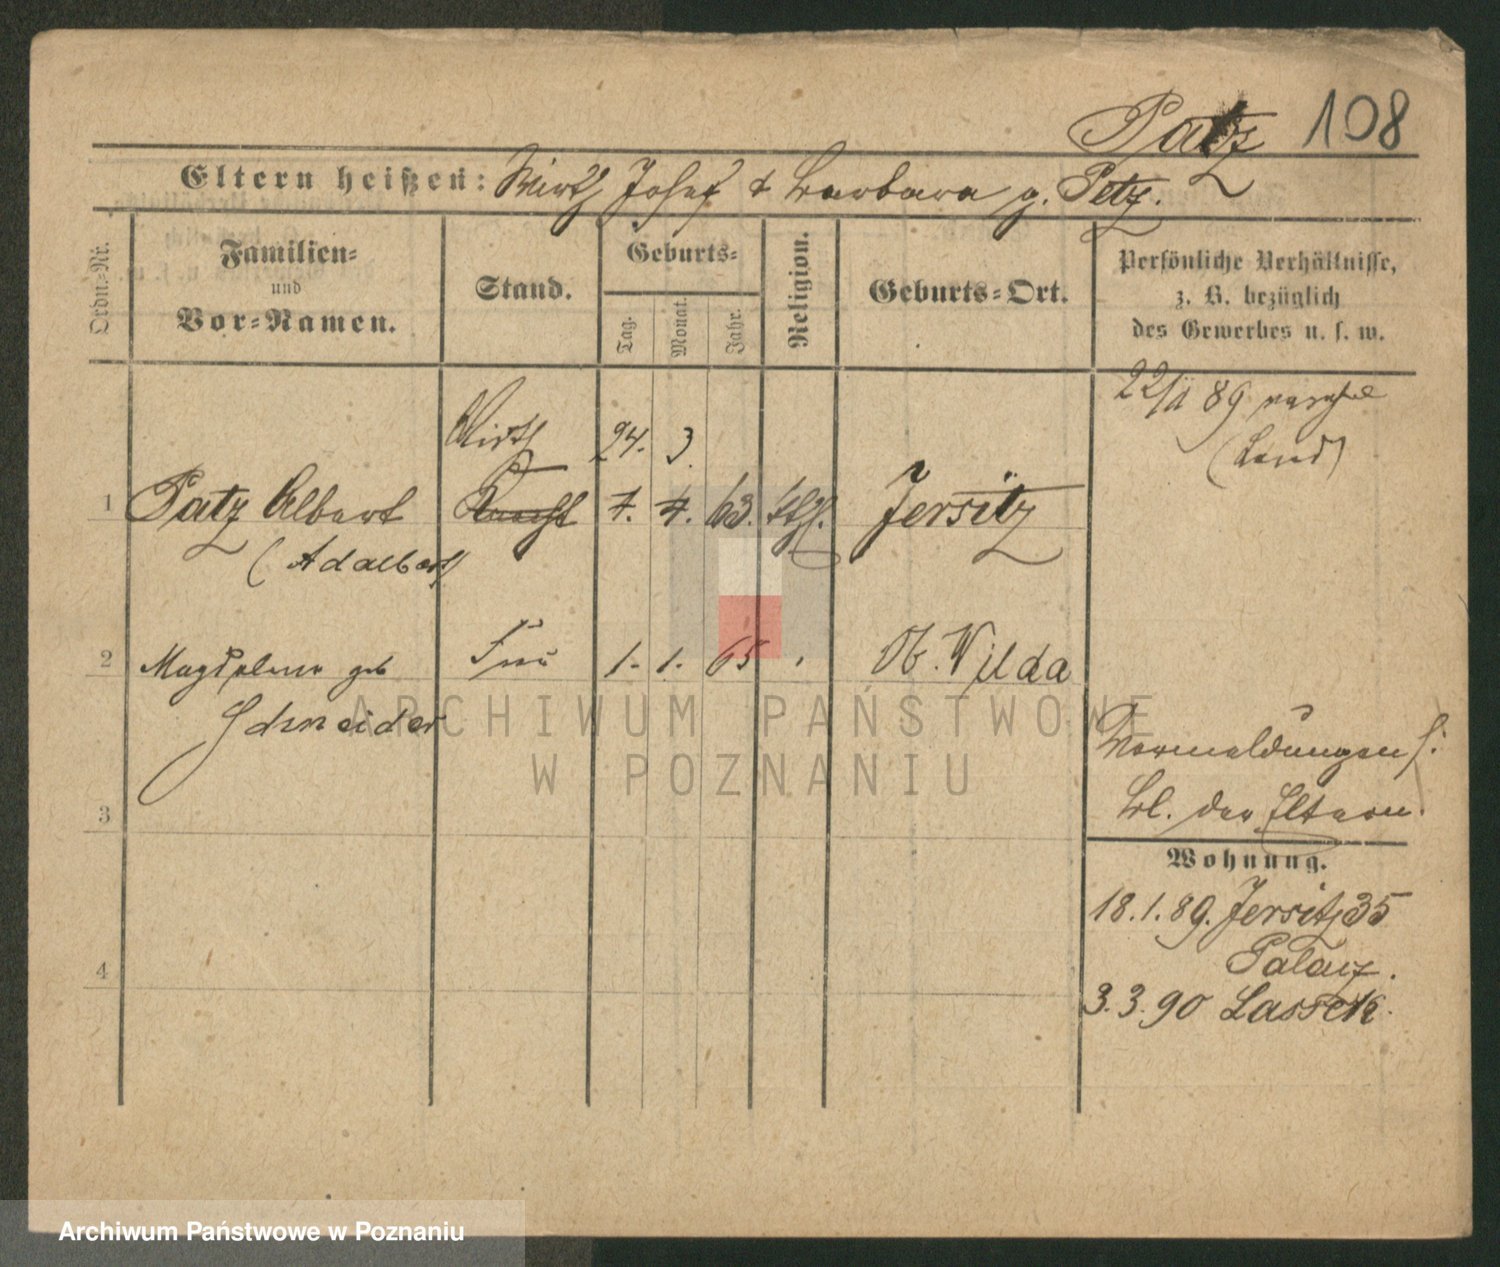 Patz 108
Eltern heißen: Wirth Josef & Barbara g. Petz.
Ordn.-Nr.
Familien-
und
Vor-Namen.
Stand.
Geburts-
Tag.
Monat.
Jahr.
Religion.
Geburts-Ort.
Persönliche Verhältnisse,
z. B. bezüglich
des Gewerbes u. s. w.
22/11 89
(Land)
Wirth 24. 3.
1 Patz Albert Knecht 7. 4. 63. kth. Jersitz
(Adalbert)
2 Magdalena geb Frau 1. 1. 65 Ob. Wilda
Schneider
Vormeldungen s.
Bl. der Eltern.
3
Wohnung.
18.1.89. Jersitz 35
Palacz.
4
3.3.90 Lassek.
ARCHIWUM PAŃSTWOWE
W POZNANIU
Archiwum Państwowe w Poznaniu